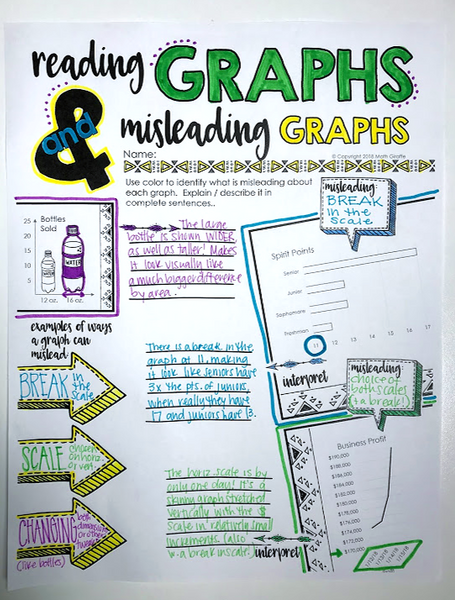 reading GRAPHS
& and
misleading GRAPHS
Name:
© Copyright 2018 Math Giraffe
Use color to identify what is misleading about
each graph. Explain / describe it in
complete sentences..
misleading:
BREAK
in the
scale
Bottles
Sold
25
20
15
10
5
12 oz. 16 oz.
WATER
The large
bottle is shown WIDER
as well as taller! Makes
it look visually like
a much bigger difference
by area.
Spirit Points
Senior
Junior
Sophomore
Freshman
11 12 13 14 15 16 17
interpret
examples of ways
a graph can
mislead
BREAK in the
scale
There is a break in the
graph at 11, making
it look like seniors have
3x the pts. of juniors,
when really they have
17 and juniors have 13.
misleading:
choice of
both scales
(+ a break!)
SCALE
chosen
on horiz.
or vert.
The horiz. scale is by
only one day! It's a
skinny graph stretched
vertically with the $
scale in relatively small
increments. (also
w a break in scale!)
interpret
Business Profit
$190,000
$188,000
$186,000
$184,000
$182,000
$180,000
$178,000
$176,000
$174,000
$172,000
$170,000
1/12/18
1/13/18
1/14/18
1/15/18
CHANGING
both
dimensions
or other
(like bottles)